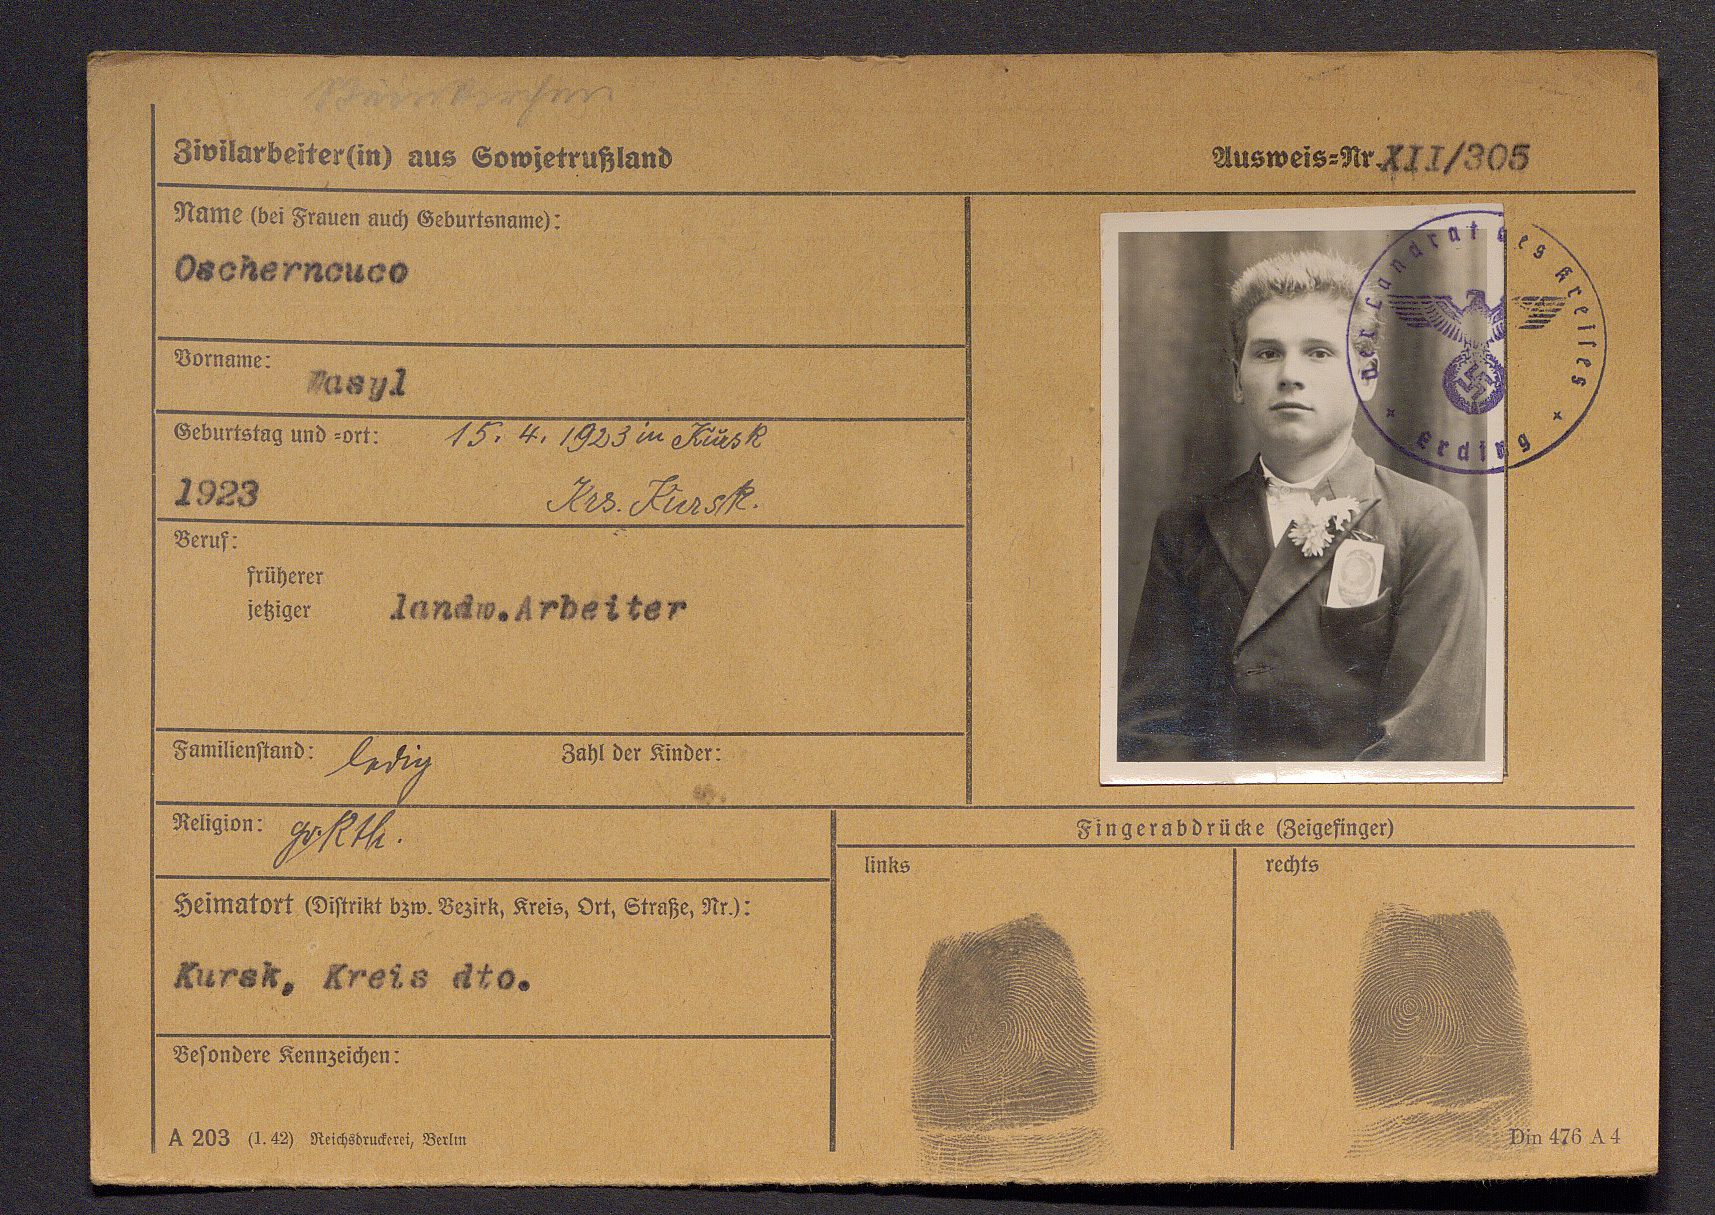 Zivilarbeiter(in) aus Sowjetrußland
Ausweis=Nr. XII/305
Name (bei Frauen auch Geburtsname):
Oscherncuco
Vorname:
Wasyl
Geburtstag und =ort: 15. 4. 1923 in Kursk
1923 Krs. Kursk.
Beruf:
früherer
jetziger landw.Arbeiter
Familienstand: ledig Zahl der Kinder:
Religion: gr.Kth.
Heimatort (Distrikt bzw. Bezirk, Kreis, Ort, Straße, Nr.):
Kursk, Kreis dto.
Besondere Kennzeichen:
A 203 (1. 42) Reichsdruckerei, Berlin
Der Landrat des Kreises
Erding
Fingerabdrücke (Zeigefinger)
links
rechts
Din 476 A 4